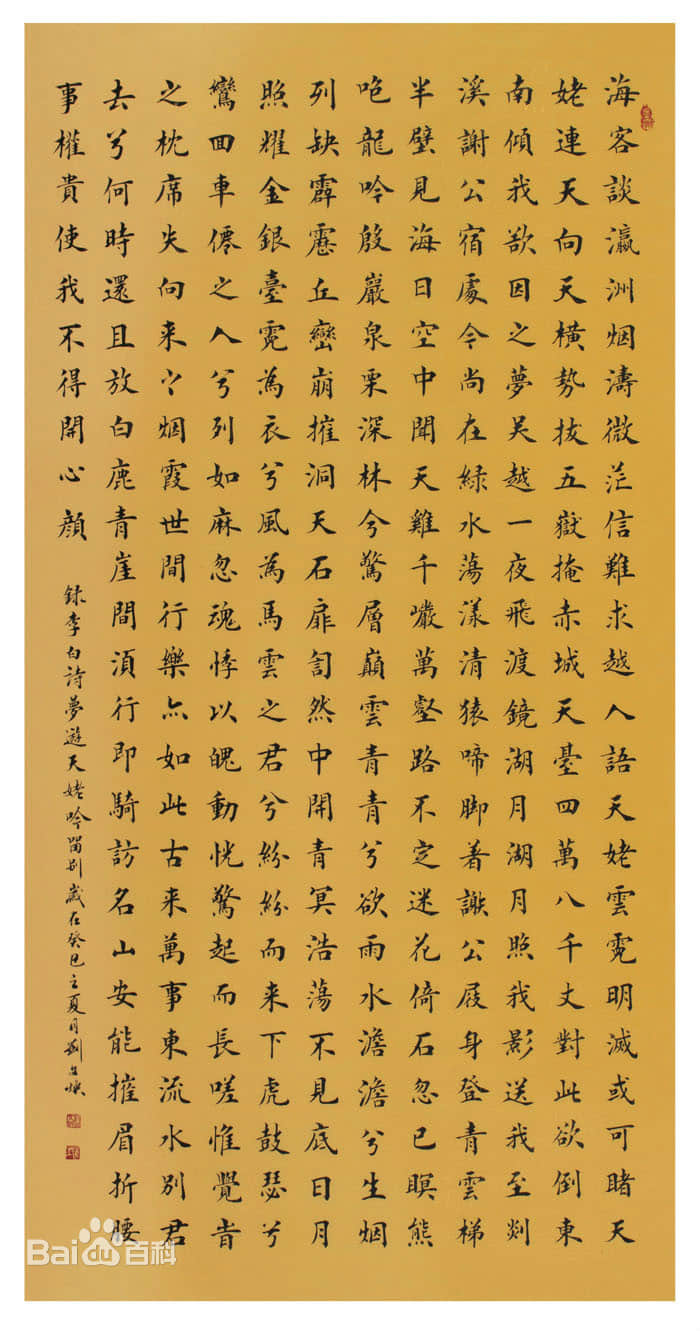 海客談瀛洲烟濤微茫信難求越人語天姥雲霓明滅或可睹天
姥連天向天橫勢拔五嶽掩赤城天臺四萬八千丈對此欲倒東
南傾我欲因之夢吴越一夜飛渡鏡湖月湖月照我影送我至剡
溪謝公宿處今尚在緑水蕩漾清猿啼脚著謝公屐身登青雲梯
半壁見海日空中聞天雞千巖萬壑路不定迷花倚石忽已瞑熊
咆龍吟殷巖泉栗深林兮驚層巔雲青青兮欲雨水澹澹兮生烟
列缺霹靂丘巒崩摧洞天石扉訇然中開青冥浩蕩不見底日月
照耀金銀臺霓為衣兮風為馬雲之君兮紛紛而来下虎鼓瑟兮
鸞回車僊之人兮列如麻忽魂悸以魄動恍驚起而長嗟惟覺旹
之枕席失向来之烟霞世間行樂亦如此古来萬事東流水別君
去兮何時還且放白鹿青崖間須行即騎訪名山安能摧眉折腰
事權貴使我不得開心顔
録李白詩夢遊天姥吟留别歲在癸巳立夏月劉
Bai百科